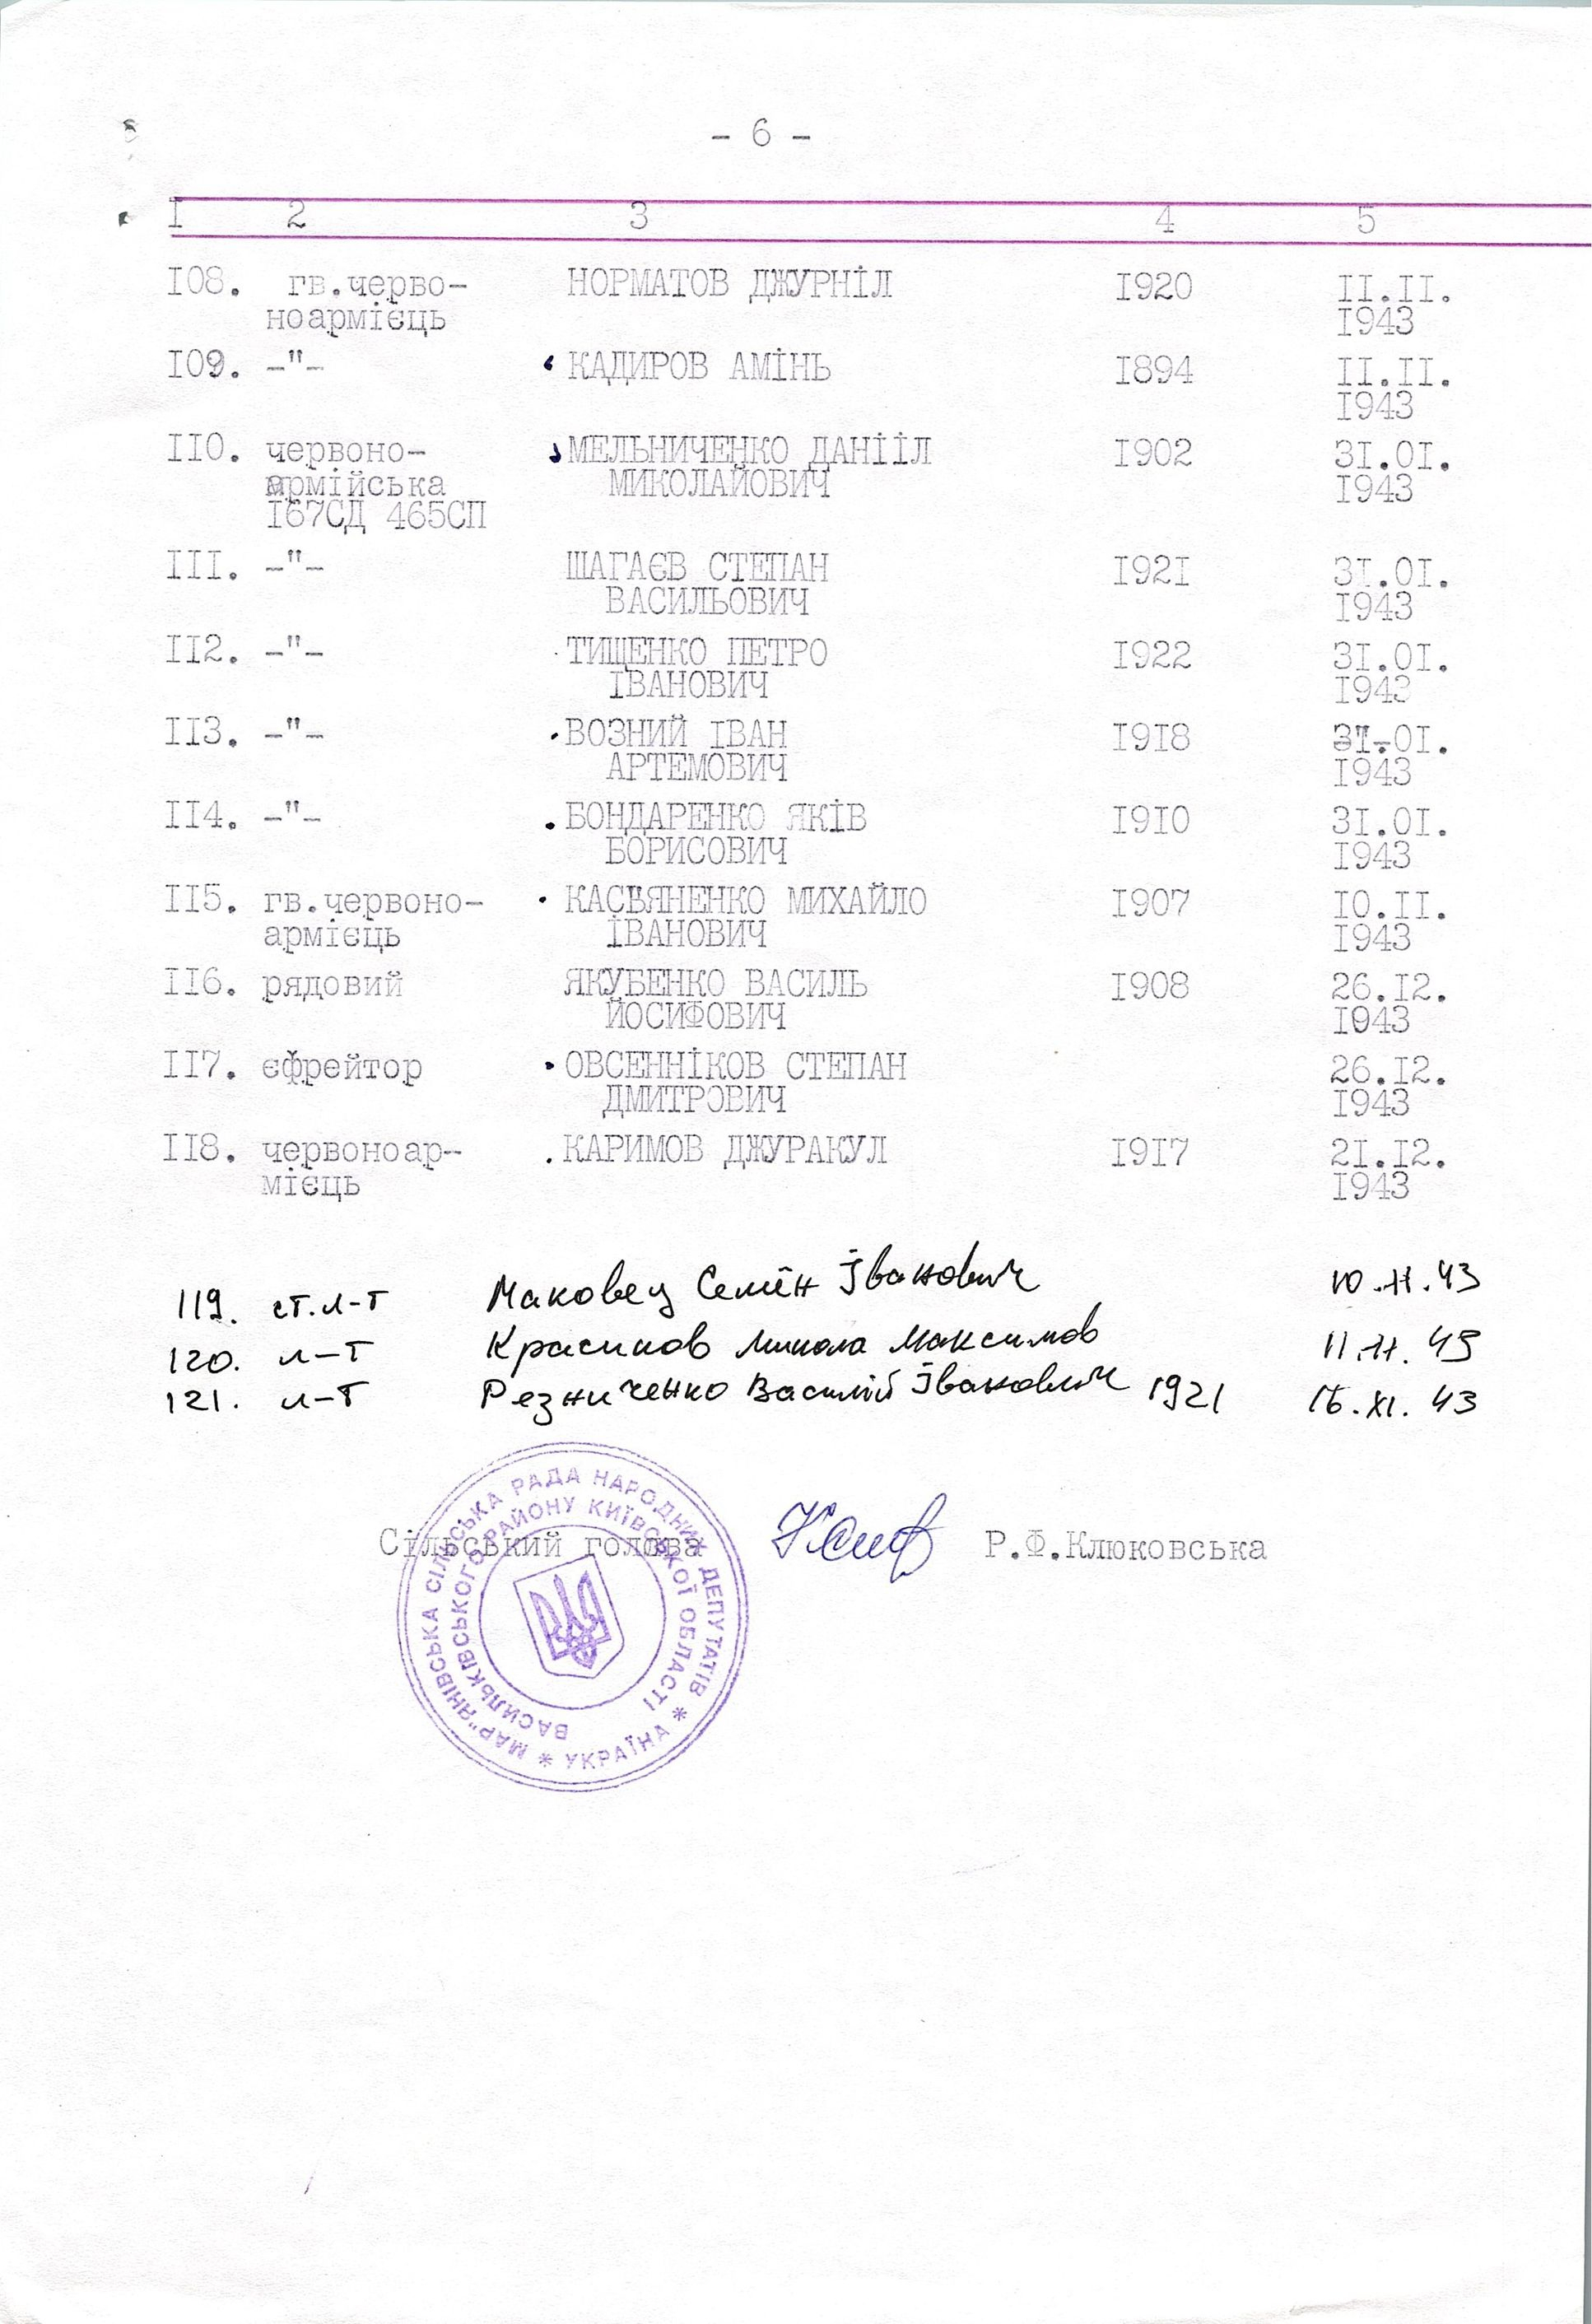 - 6 -
I 2 3 4 5
I08. гв.черво- НОРМАТОВ ДЖУРНІЛ I920 II.II.
ноармієць I943
I09. -"- КАДИРОВ АМІНЬ I894 II.II.
I943
II0. червоно- МЕЛЬНИЧЕНКО ДАНІЇЛ I902 3I.0I.
армійська МИКОЛАЙОВИЧ I943
I67СД 465СП
III. -"- ШАГАЄВ СТЕПАН I92I 3I.0I.
ВАСИЛЬОВИЧ I943
II2. -"- ТИЩЕНКО ПЕТРО I922 3I.0I.
ІВАНОВИЧ I943
II3. -"- ВОЗНИЙ ІВАН I9I8 3I.0I.
АРТЕМОВИЧ I943
II4. -"- БОНДАРЕНКО ЯКІВ I9I0 3I.0I.
БОРИСОВИЧ I943
II5. гв.червоно- КАСЬЯНЕНКО МИХАЙЛО I907 I0.II.
армієць ІВАНОВИЧ I943
II6. рядовий ЯКУБЕНКО ВАСИЛЬ I908 26.I2.
ЙОСИФОВИЧ I943
II7. єфрейтор ОВСЕННІКОВ СТЕПАН 26.I2.
ДМИТРОВИЧ I943
II8. червоноар- КАРИМОВ ДЖУРАКУЛ I9I7 2I.I2.
мієць I943
119. ст.л-т Маковец Семён Іванович 10.11.43
120. л-т Красиков Микола Максимов 11.11.43
121. л-т Резниченко Василій Іванович 1921 XI. 43
Сільський голова Р.Ф.Клюковська
МАР"ЯНІВСЬКА СІЛЬСЬКА РАДА НАРОДНИХ ДЕПУТАТІВ * УКРАЇНА *
ВАСИЛЬКІВСЬКОГО РАЙОНУ КИЇВСЬКОЇ ОБЛАСТІ